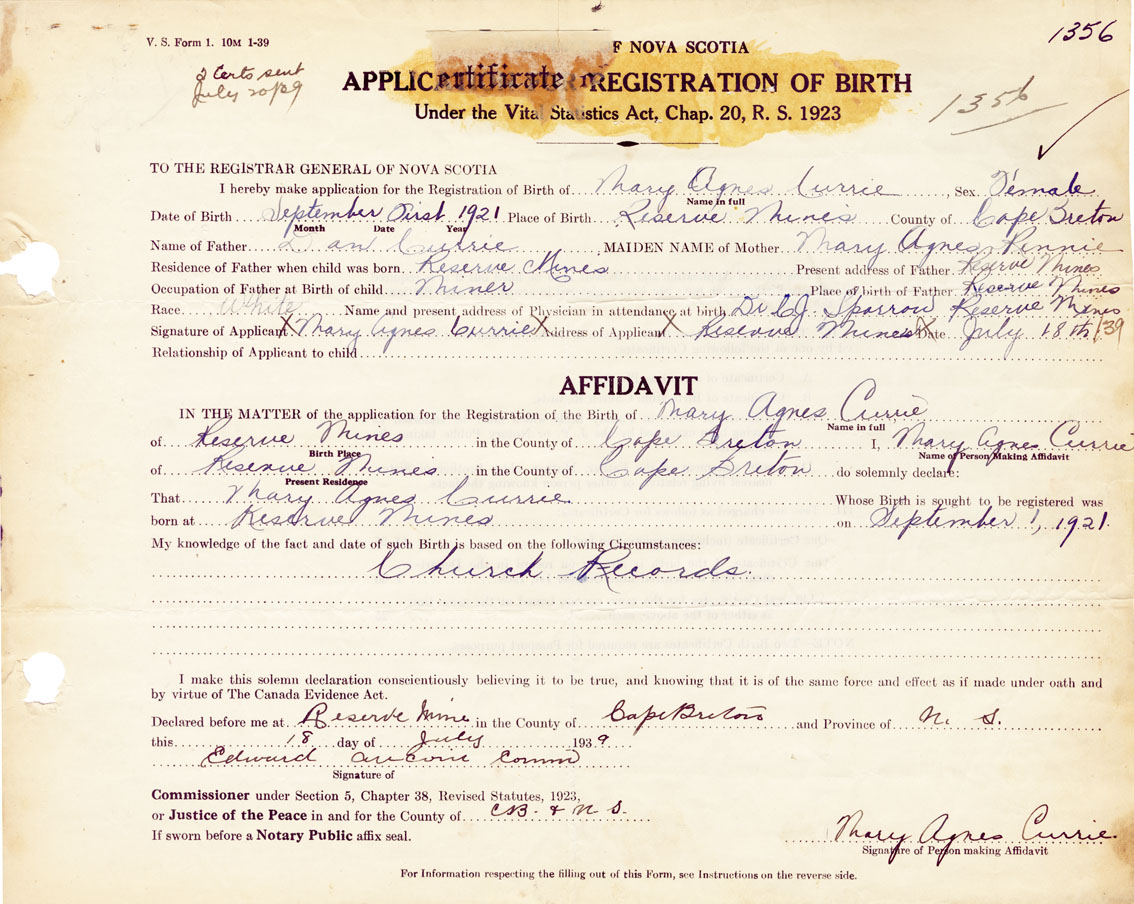 V. S. Form 1. 10M 1-39
1356
2 Certs sent
July 20/39
F NOVA SCOTIA
APPLIC ertificate o REGISTRATION OF BIRTH
1356
Under the Vital Statistics Act, Chap. 20, R. S. 1923
TO THE REGISTRAR GENERAL OF NOVA SCOTIA
I hereby make application for the Registration of Birth of Mary Agnes Currie, Sex Female
Name in full
Date of Birth September First 1921 Place of Birth Reserve Mines County of Cape Breton
Month Date Year
Name of Father Dan Currie, MAIDEN NAME of Mother Mary Agnes Rennie
Residence of Father when child was born Reserve Mines Present address of Father Reserve Mines
Occupation of Father at Birth of child Miner Place of birth of Father Reserve Mines
Race White Name and present address of Physician in attendance at birth Dr CJ. Sparrow Reserve Mines
Signature of Applicant X Mary Agnes Currie X Address of Applicant X Reserve Mines X Date July 18th/39
Relationship of Applicant to child
AFFIDAVIT
IN THE MATTER of the application for the Registration of the Birth of Mary Agnes Currie
Name in full
of Reserve Mines in the County of Cape Breton I, Mary Agnes Currie
Birth Place Name of Person Making Affidavit
of Reserve Mines in the County of Cape Breton do solemnly declare:
Present Residence
That Mary Agnes Currie Whose Birth is sought to be registered was
born at Reserve Mines on September 1, 1921.
My knowledge of the fact and date of such Birth is based on the following Circumstances:
Church Records.
I make this solemn declaration conscientiously believing it to be true, and knowing that it is of the same force and effect as if made under oath and
by virtue of The Canada Evidence Act.
Declared before me at Reserve Mine in the County of Cape Breton and Province of N. S.
this 18 day of July 1939
Edward Comm
Signature of
Commissioner under Section 5, Chapter 38, Revised Statutes, 1923,
or Justice of the Peace in and for the County of C.B. & N S.
If sworn before a Notary Public affix seal.
Mary Agnes Currie.
Signature of Person making Affidavit
For Information respecting the filling out of this Form, see Instructions on the reverse side.